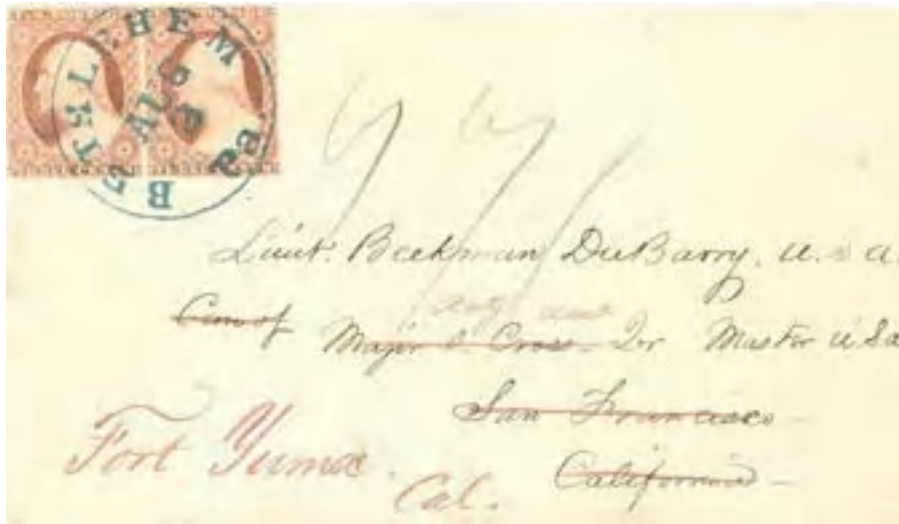 BETHLEHEM Pa
AUG
Lieut. Beekman DuBarry, U. S. A.
Care of Major O. Cross Qr Master U S A
San Francisco
California
Fort Yuma.
Cal.